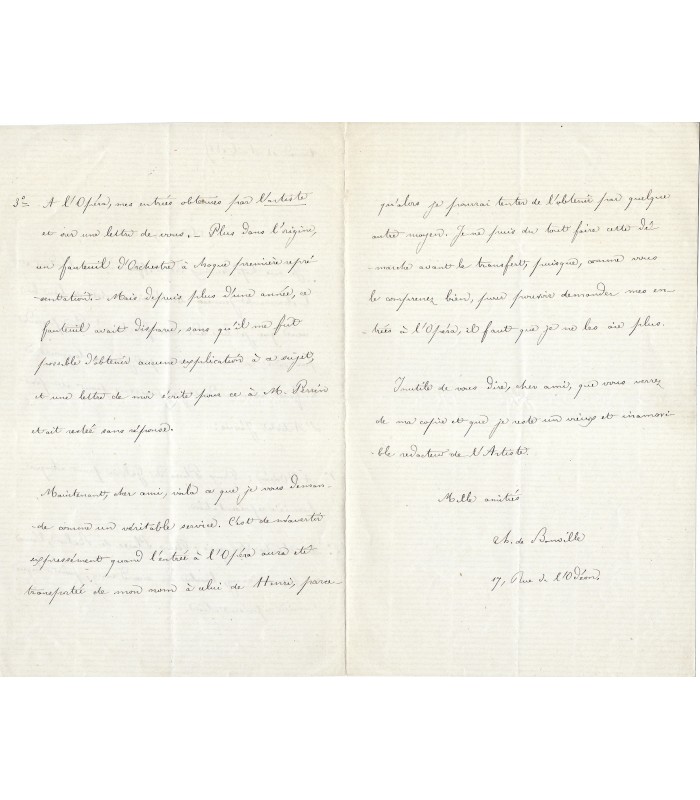 3º= A l'Opéra, mes entrées obtenues par l'artiste
et sur une lettre de vous. — Plus dans l'origine,
un fauteuil d'Orchestre à chaque première repré
-sentation. Mais depuis plus d'une année, ce
fauteuil avait disparu, sans qu'il me fût
possible d'obtenir aucune explication à ce sujet,
et une lettre de moi écrite pour ce à M. Perrin
était restée sans réponse.
Maintenant, cher ami, voilà ce que je vous deman-
de comme un véritable service. C'est de m'avertir
expressément quand l'entrée à l'Opéra aura été
transportée de mon nom à celui de Henri, parce-
qu'alors je pourrai tenter de l'obtenir par quelque
autre moyen. Je ne puis du tout faire cette dé
-marche avant le transfert, puisque, comme vous
le comprenez bien, pour pouvoir demander mes en-
trées à l'Opéra, il faut que je ne les aie plus.
Inutile de vous dire, cher ami, que vous verrez
de ma copie et que je reste un vieux et inamovi-
-ble rédacteur de L'Artiste.
Mille amitiés
Th. de Banville
17, Rue de l'Odéon.